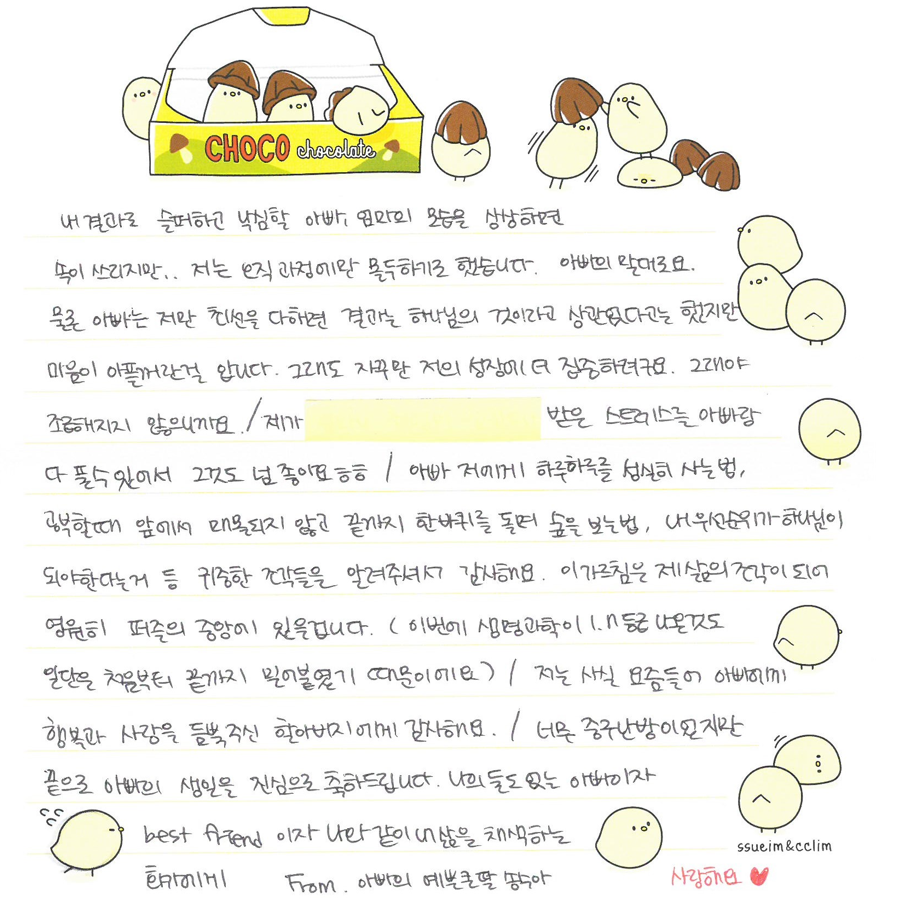 CHOCO chocolate
내 결과로 슬퍼하고 낙심할 아빠, 엄마의 모습을 상상하면
속이 쓰리지만.. 저는 오직 과정에만 몰두하기로 했습니다. 아빠의 말대로요.
물론 아빠는 저만 최선을 다하면 결과는 하나님의 것이라고 상관없다고는 했지만
마음이 아플거란걸 압니다. 그래도 자꾸만 저의 성장에 더 집중하려구요. 그래야
조급해지지 않으니까요. / 제가 받은 스트레스를 아빠랑
다 풀 수 있어서 그것도 넘 좋아요 ㅎㅎ / 아빠 저에게 하루하루를 성실히 사는법,
공부할때 앞에서 매몰되지 않고 끝까지 한바퀴를 돌며 숲을 보는법, 내 우선순위가 하나님이
되야한다는거 등 귀중한 조각들을 알려주셔서 감사해요. 이 가르침은 제 삶의 조각이 되어
영원히 퍼즐의 중앙에 있을겁니다. (이번에 생명과학이 1.n등급 나온것도
일단은 처음부터 끝까지 밀어붙였기 때문이에요) / 저는 사실 요즘들어 아빠에게
행복과 사랑을 듬뿍주신 한아버지에게 감사해요. / 너무 중구난방이였지만
끝으로 아빠의 생일을 진심으로 축하드립니다. 나의 둘도없는 아빠이자
best friend 이자 나랑 같이 내 삶을 채색하는
화가에게 From. 아빠의 예쁜큰딸 송수아
사랑해요
ssueim&cclim